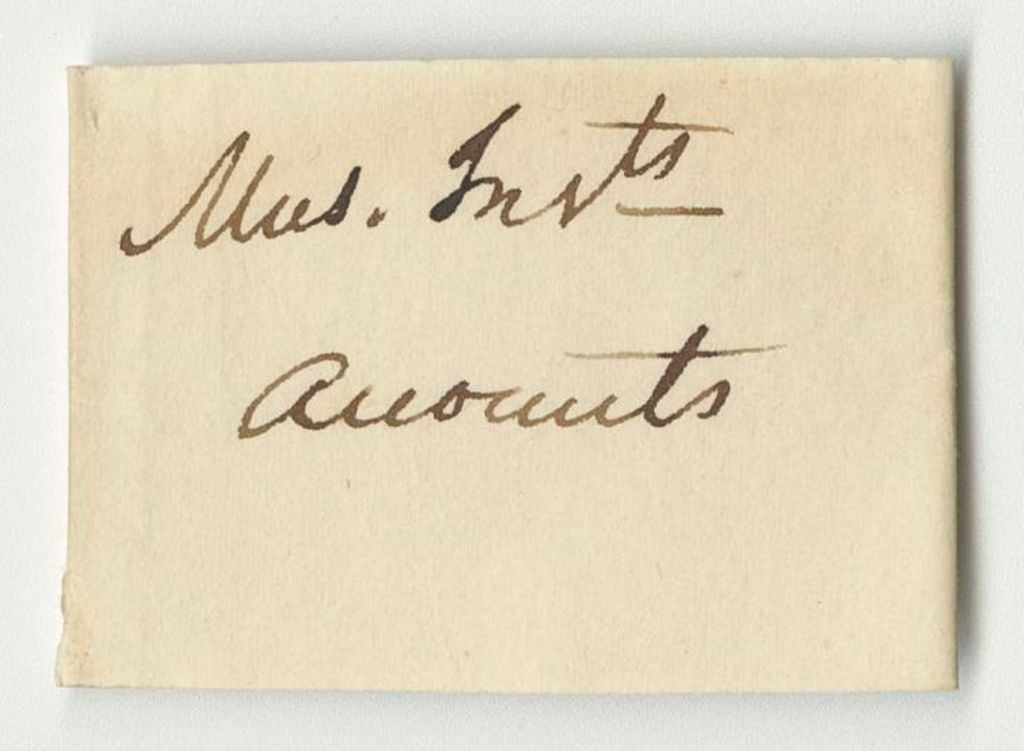 Mus. Insts
Accounts